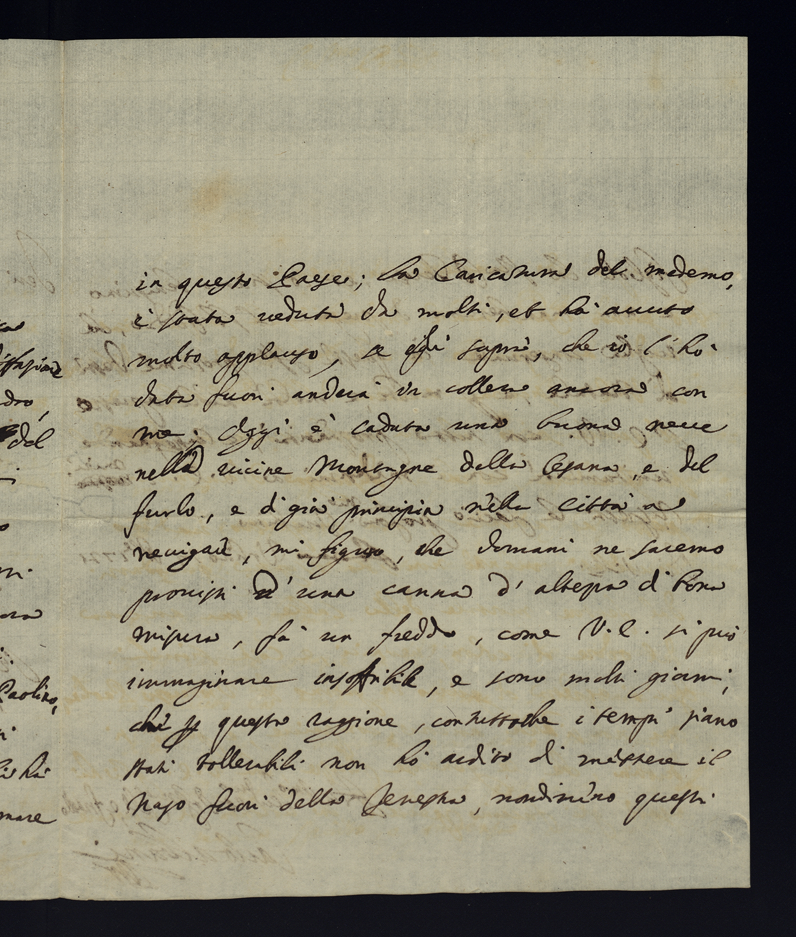 in questo Paese; la Caricatura del medemo,
è stata veduta da molti, et hà avuto
molto applauso, se egli saprà, che io l'hò
data fuori anderà in collera ancora con
me; Oggi è caduta una buona neve
nella vicine Montagne della Cesana, e del
furlo, e di già principia nella città a
nevigare, mi figuro, che domani ne saremo
provisti d'una canna d'altezza di bona
misura, fà un freddo, come V.E. si può
immaginare insoffribile, e sono molti giorni,
che per questa raggione, contuttoche i tempi siano
stati tollerabili non hò ardito di mettere il
Naso fuori della fenestra, nondimeno questi
dro,
del
ora
Paolino,
mare